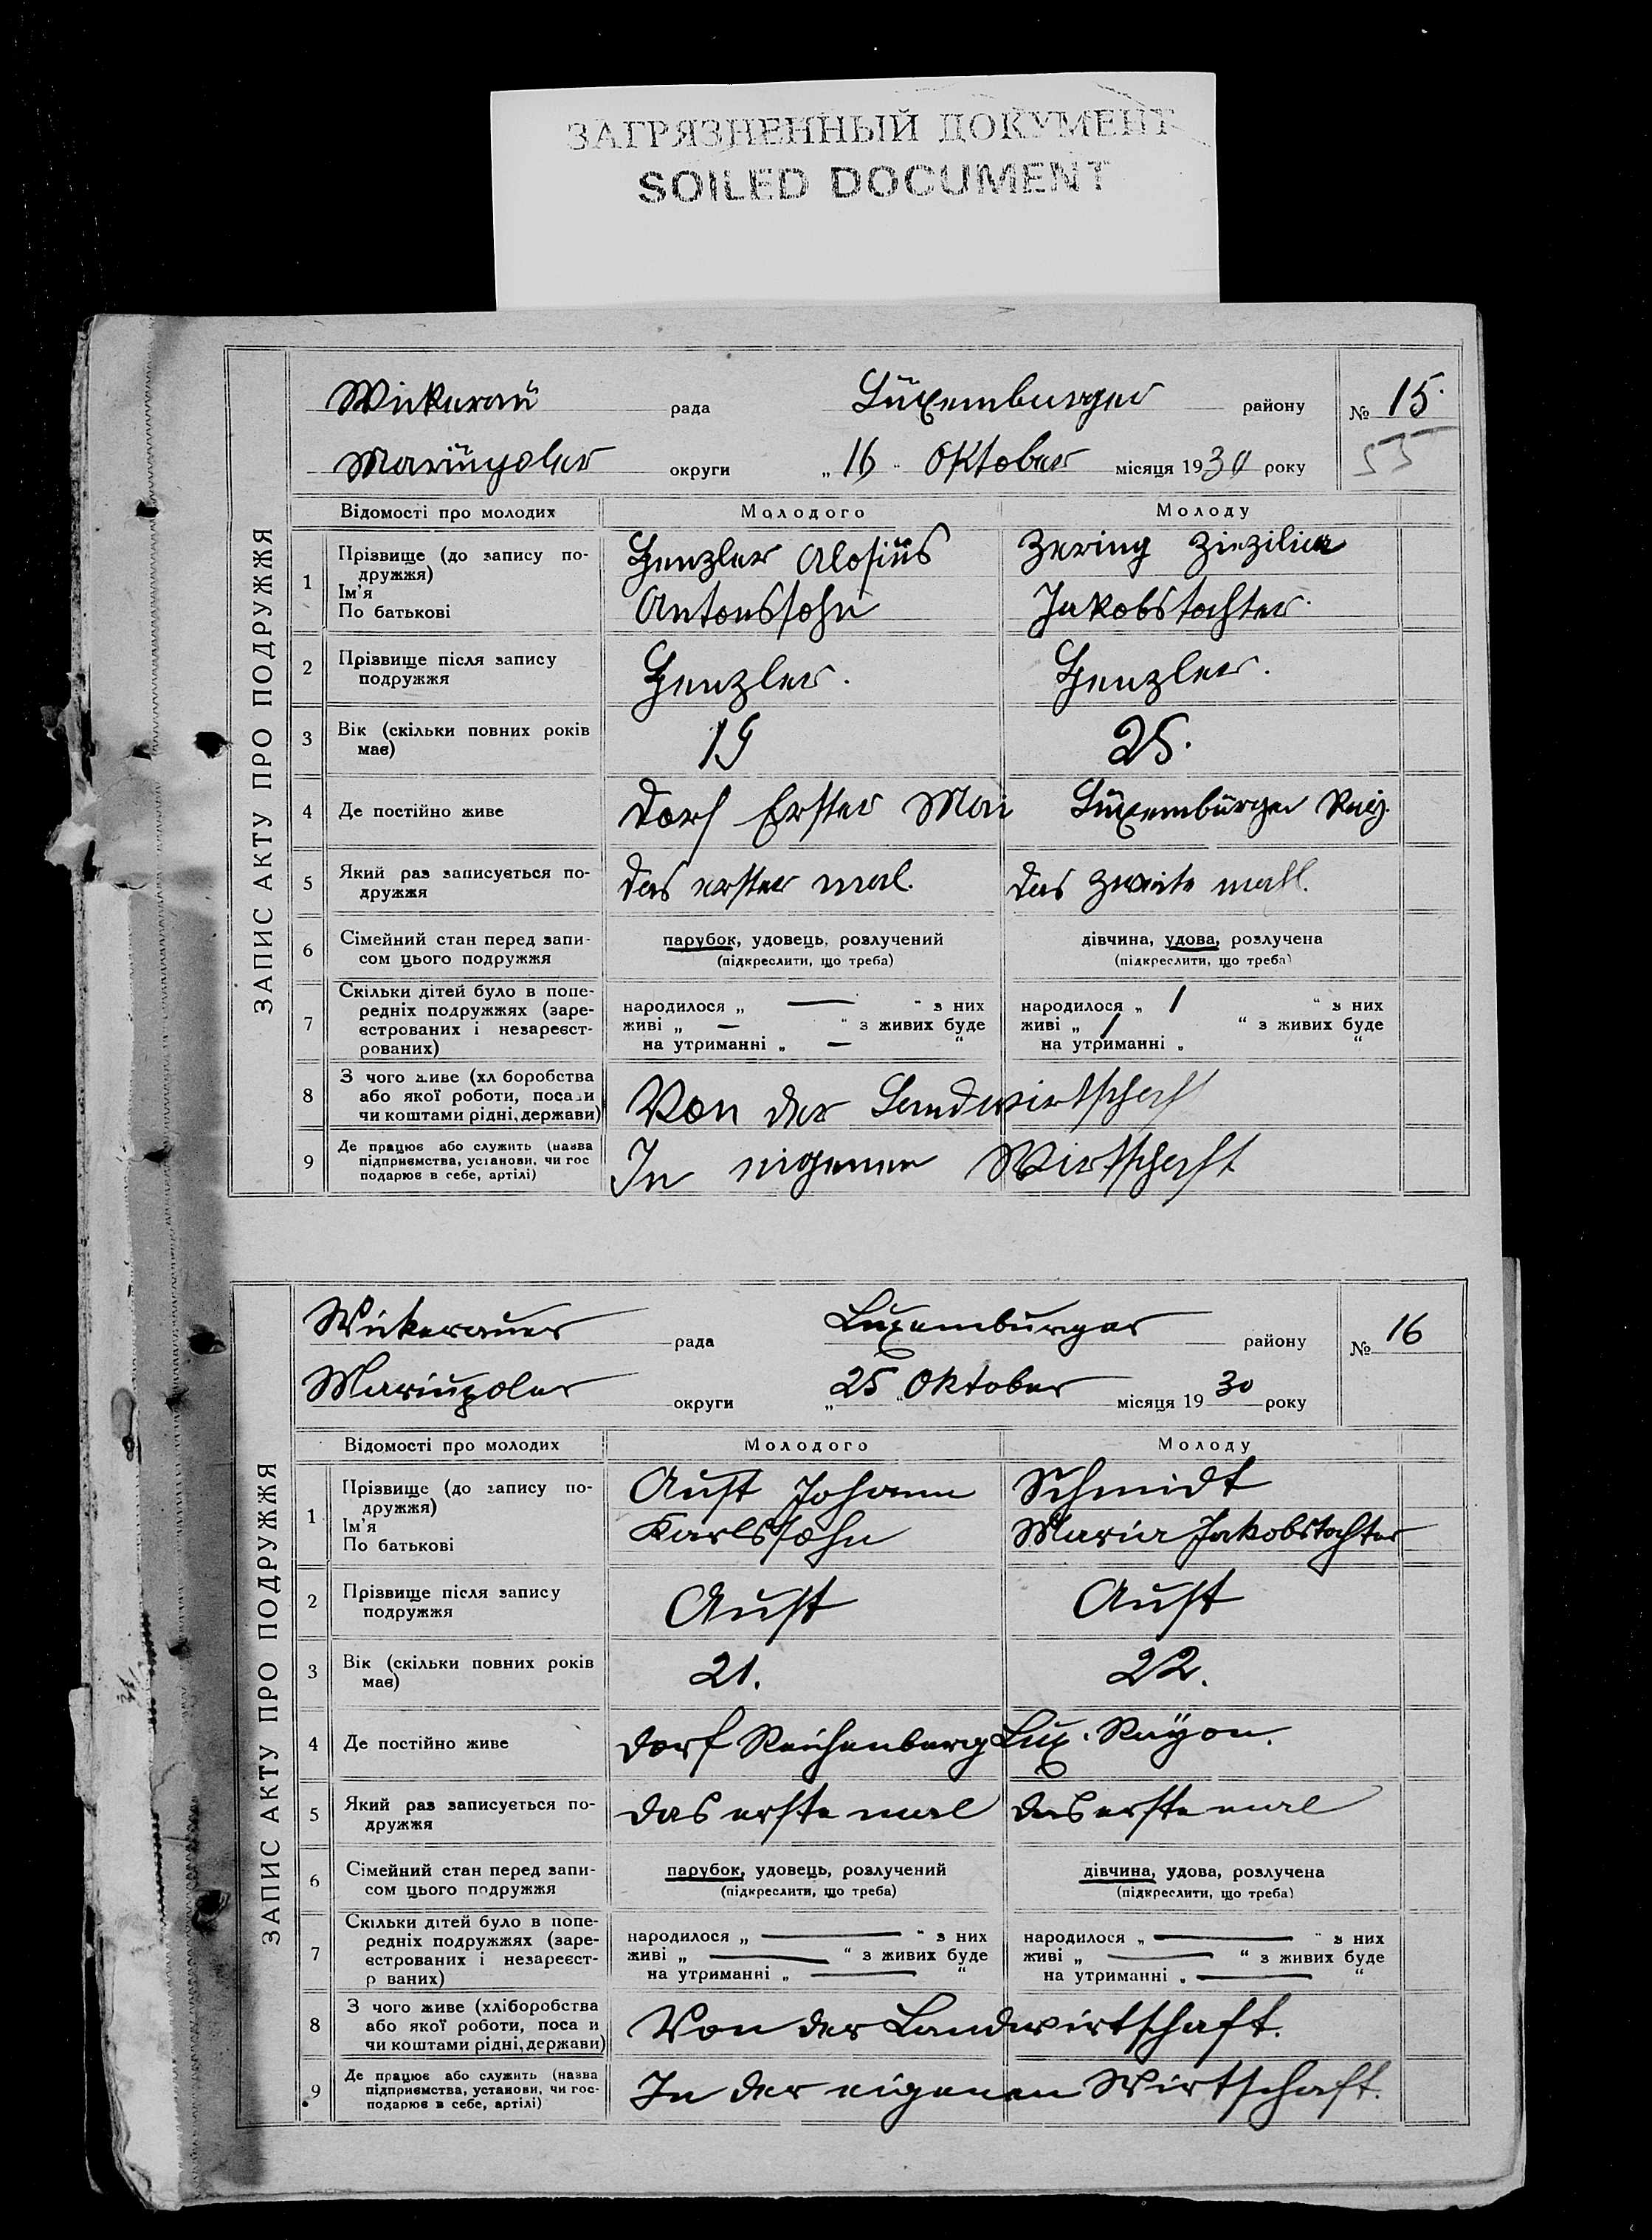 ЗАГРЯЗНЕННЫЙ ДОКУМЕНТ
SOILED DOCUMENT
ЗАПИС АКТУ ПРО ПОДРУЖЖЯ
Wickerau рада Lüxemburger району № 15.
Mariüpoler округи „ 16 " Oktober місяця 1930 року 55
Відомості про молодих Молодого Молоду
1 Прізвище (до запису по-
дружжя)
Ім'я
По батькові
Henzler Alosiüs
Antonssohn
Zering Ziezilia
Jakobstochter.
2 Прізвище після запису
подружжя
Henzler. Henzler.
3 Вік (скільки повних років
має)
19 25.
4 Де постійно живе Dorf Erster Mai Lüxembürger Raj.
5 Який раз записується по-
дружжя
das erster mal. das zweite mahl.
6 Сімейний стан перед запи-
сом цього подружжя
парубок, удовець, розлучений
(підкреслити, що треба)
дівчина, удова, розлучена
(підкреслити, що треба)
7 Скільки дітей було в попе-
редніх подружжях (заре-
єстрованих і незареєст-
рованих)
народилося „ — " з них
живі „ — " з живих буде
на утриманні „ — "
народилося „ 1 " з них
живі „ 1 " з живих буде
на утриманні „ "
8 З чого живе (хл боробства
або якої роботи, посади
чи коштами рідні, держави)
Von der Landwirtschaf
9 Де працює або служить (назва
підприємства, установи, чи гос
подарює в себе, артілі)
In eigener Wirtschaft
ЗАПИС АКТУ ПРО ПОДРУЖЖЯ
Wickerauer рада Luxembürger району № 16
Mariüpoler округи „ 25 " Oktober місяця 1930 року
Відомості про молодих Молодого Молоду
1 Прізвище (до запису по-
дружжя)
Ім'я
По батькові
Aust Johann
Karlssohn
Schmidt
Maria Jakobstochter
2 Прізвище після запису
подружжя
Aust Aust
3 Вік (скільки повних років
має)
21. 22.
4 Де постійно живе Dorf Reichenberg Lux. Rayon.
5 Який раз записується по-
дружжя
das erste mal das erste mal
6 Сімейний стан перед запи-
сом цього подружжя
парубок, удовець, розлучений
(підкреслити, що треба)
дівчина, удова, розлучена
(підкреслити, що треба)
7 Скільки дітей було в попе-
редніх подружжях (заре-
єстрованих і незареєст-
р ваних)
народилося „ — " з них
живі „ — " з живих буде
на утриманні „ — "
народилося „ — " з них
живі „ — " з живих буде
на утриманні „ — "
8 З чого живе (хліборобства
або якої роботи, поса и
чи коштами рідні, держави)
Von der Landwirtschaft.
9 Де працює або служить (назва
підприємства, установи, чи гос-
подарює в себе, артілі)
In der eigenen Wirtschaft.